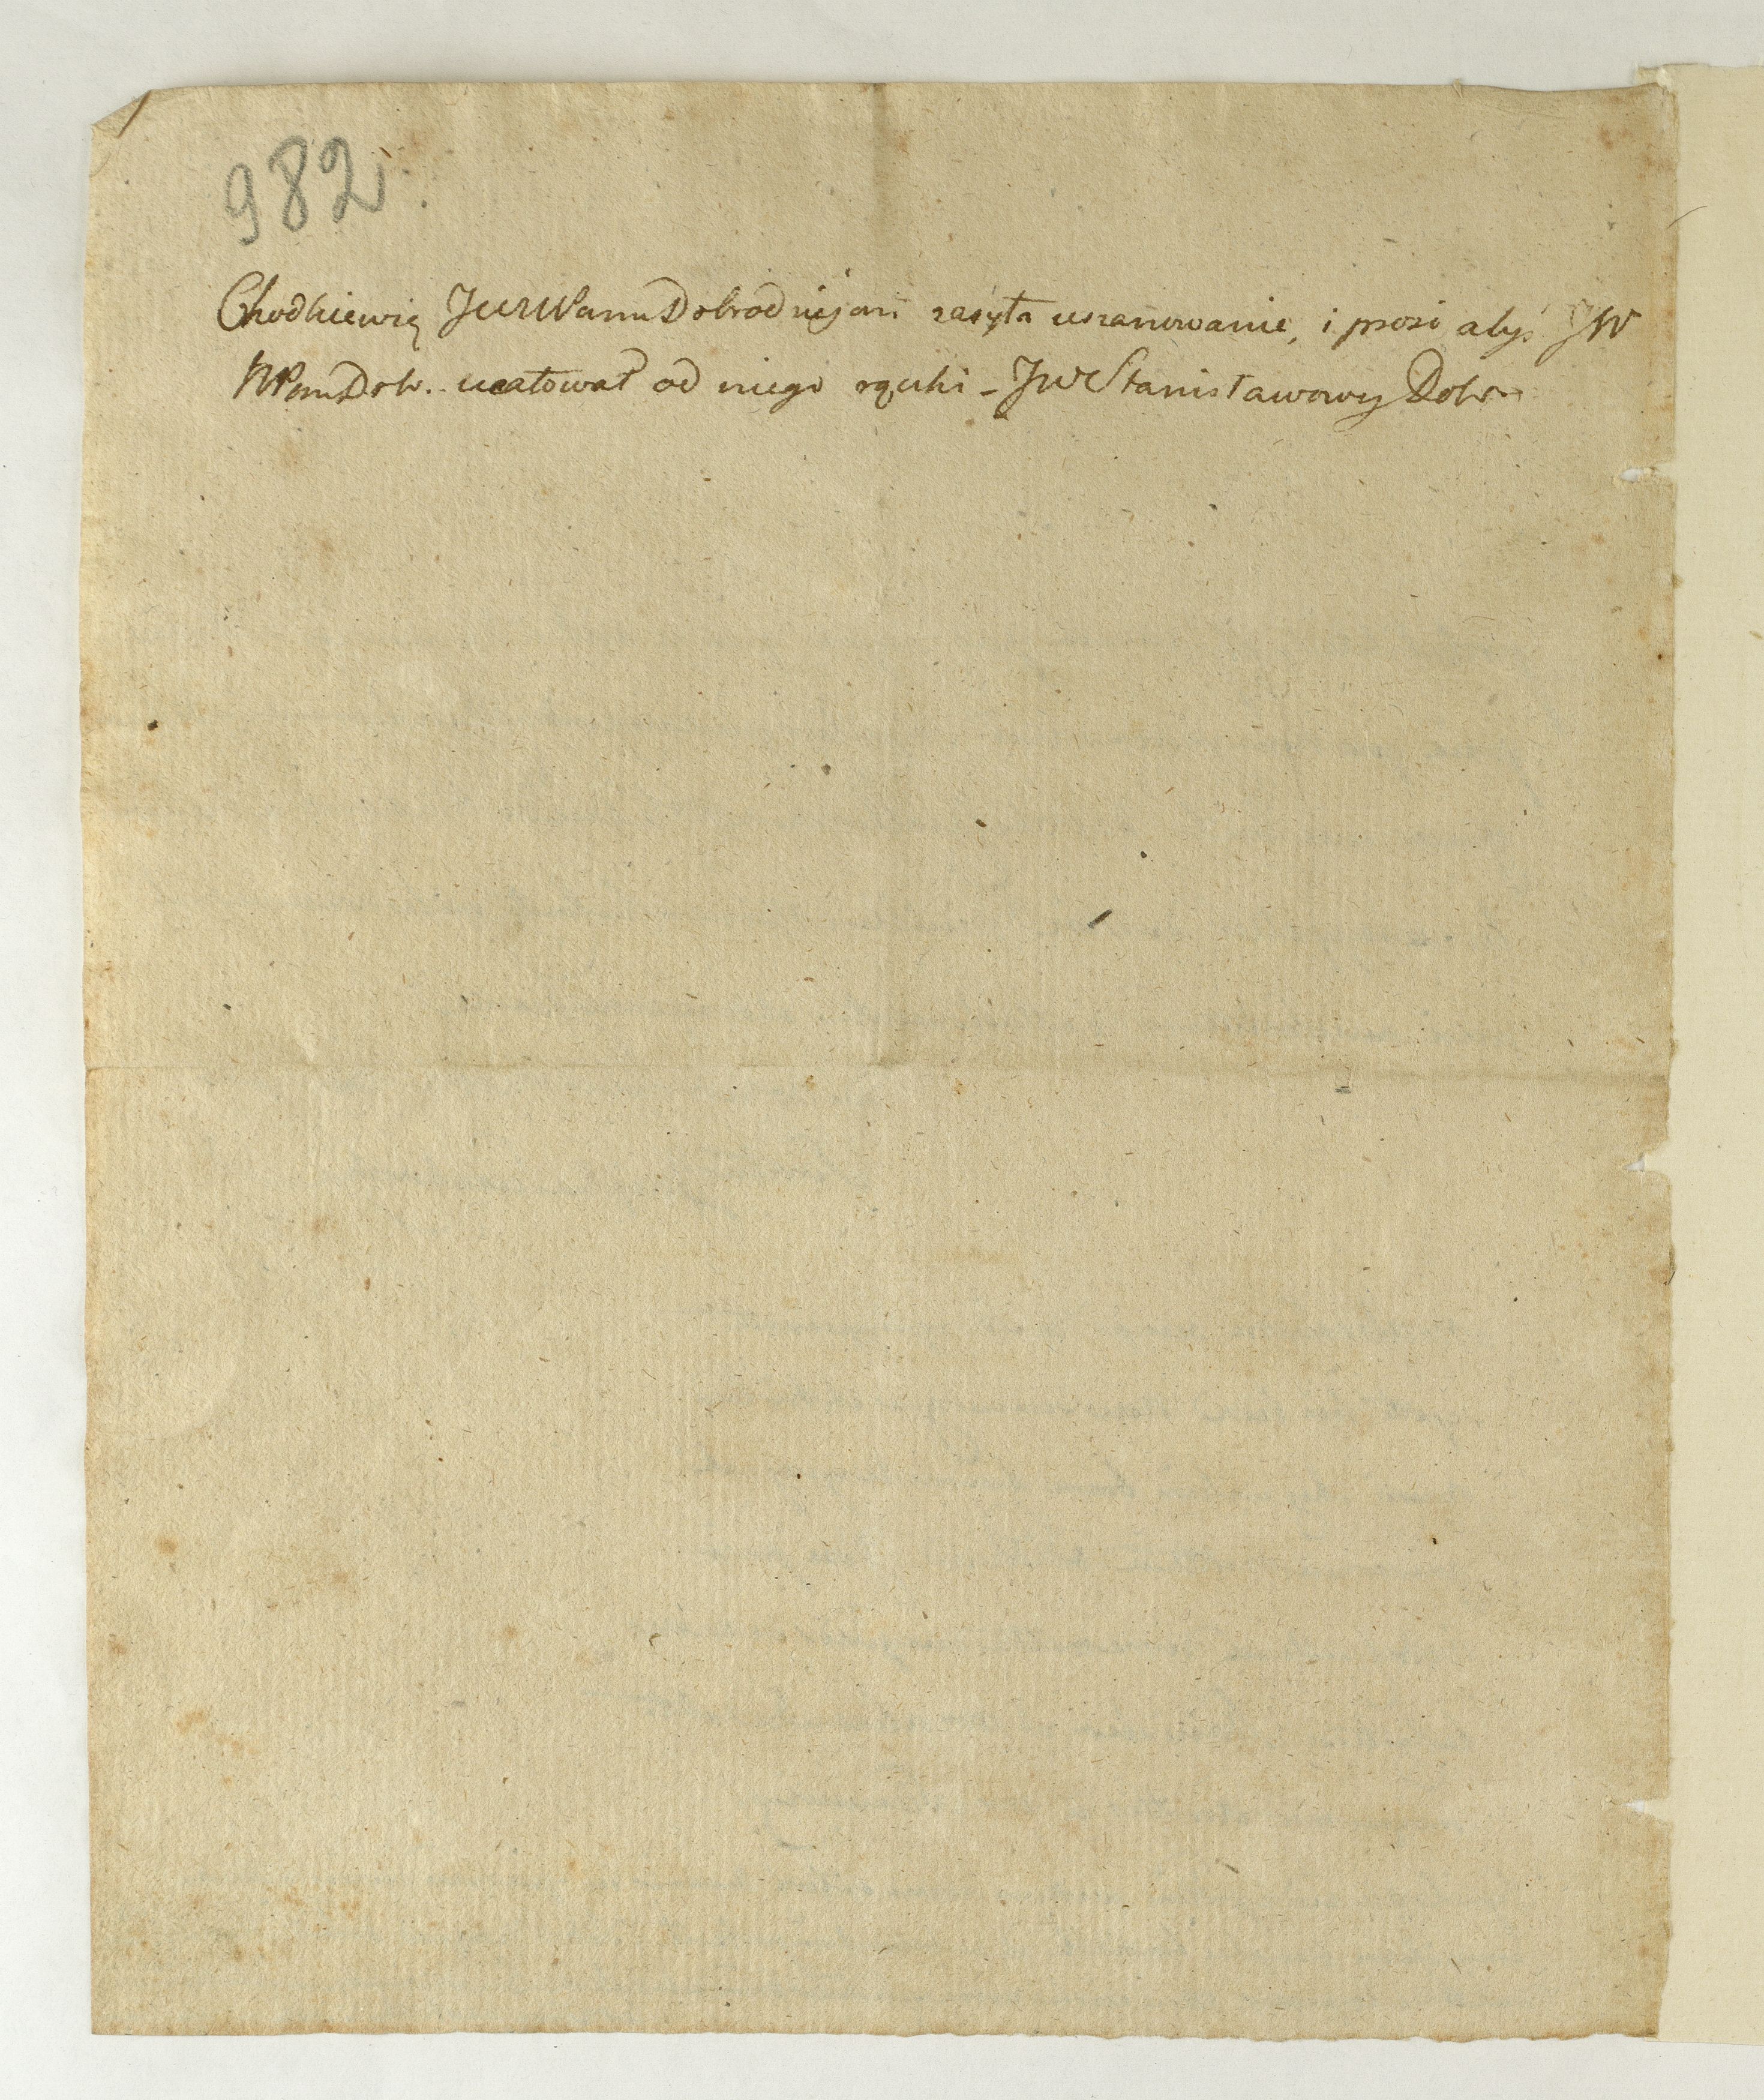 982.
Chodkiewicz JWWPanu Dobrodziejowi zasyła uszanowanie, i prosi abyś JW
WPan Dob. ucałował od niego rączki - JW Stanisławowy Dobr